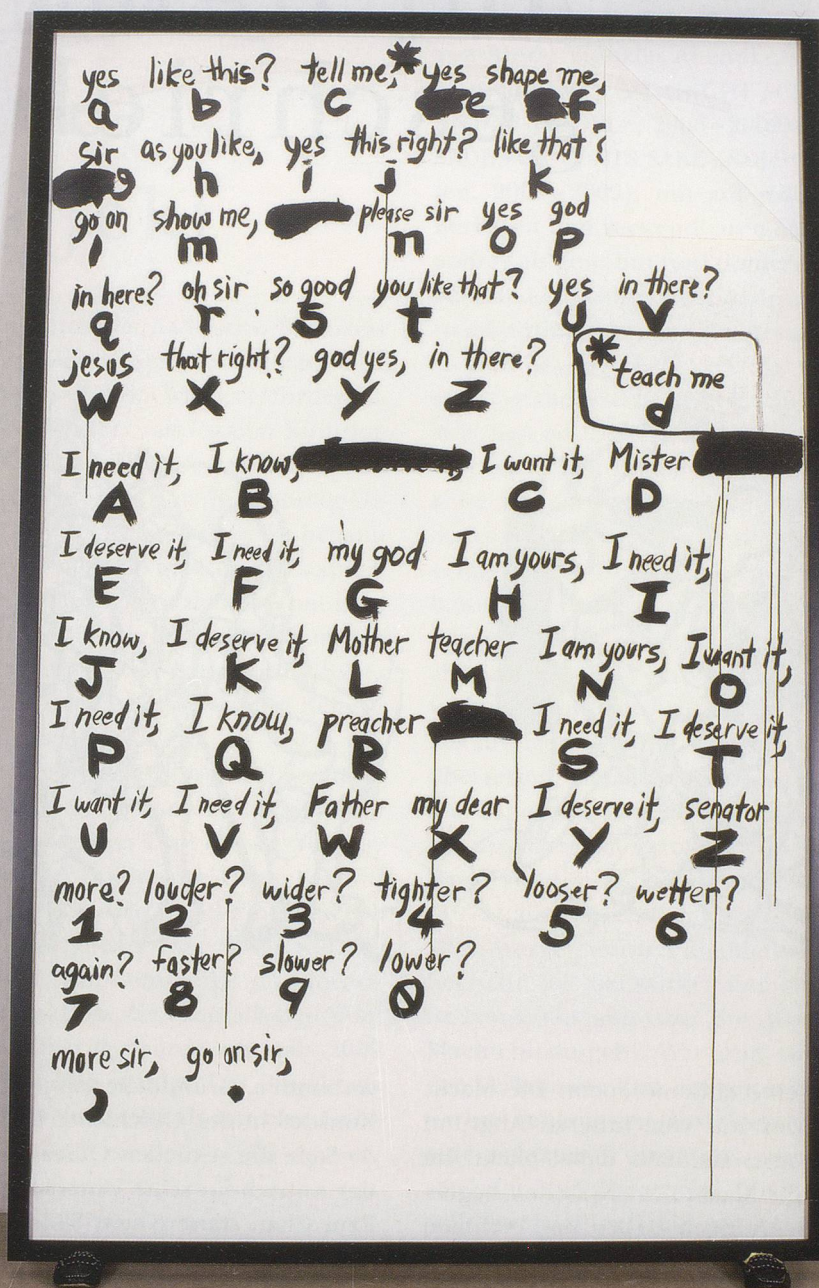 yes like this? tell me,* yes shape me,
a b c e f
sir as you like, yes this right? like that?
g h i j k
go on show me, please sir yes god
l m n o p
in here? oh sir so good you like that? yes in there?
q r s t u v
jesus that right? god yes, in there?
w x y z
* teach me
d
I need it, I know, I want it, Mister
A B C D
I deserve it, I need it, my god I am yours, I need it,
E F G H I
I know, I deserve it, Mother teacher I am yours, I want it,
J K L M N O
I need it, I know, preacher I need it, I deserve it,
P Q R S T
I want it, I need it, Father my dear I deserve it, senator
U V W X Y Z
more? louder? wider? tighter? looser? wetter?
1 2 3 4 5 6
again? faster? slower? lower?
7 8 9 0
more sir, go on sir,
, .